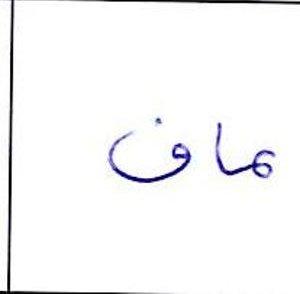 ماف